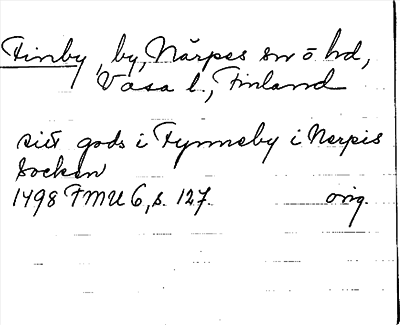 Finby, by, Närpes sn o hd,
Vasa l., Finland
sitt gods i Fynneby i Nerpis
Socken
1498 FMU 6, s. 127. orig.